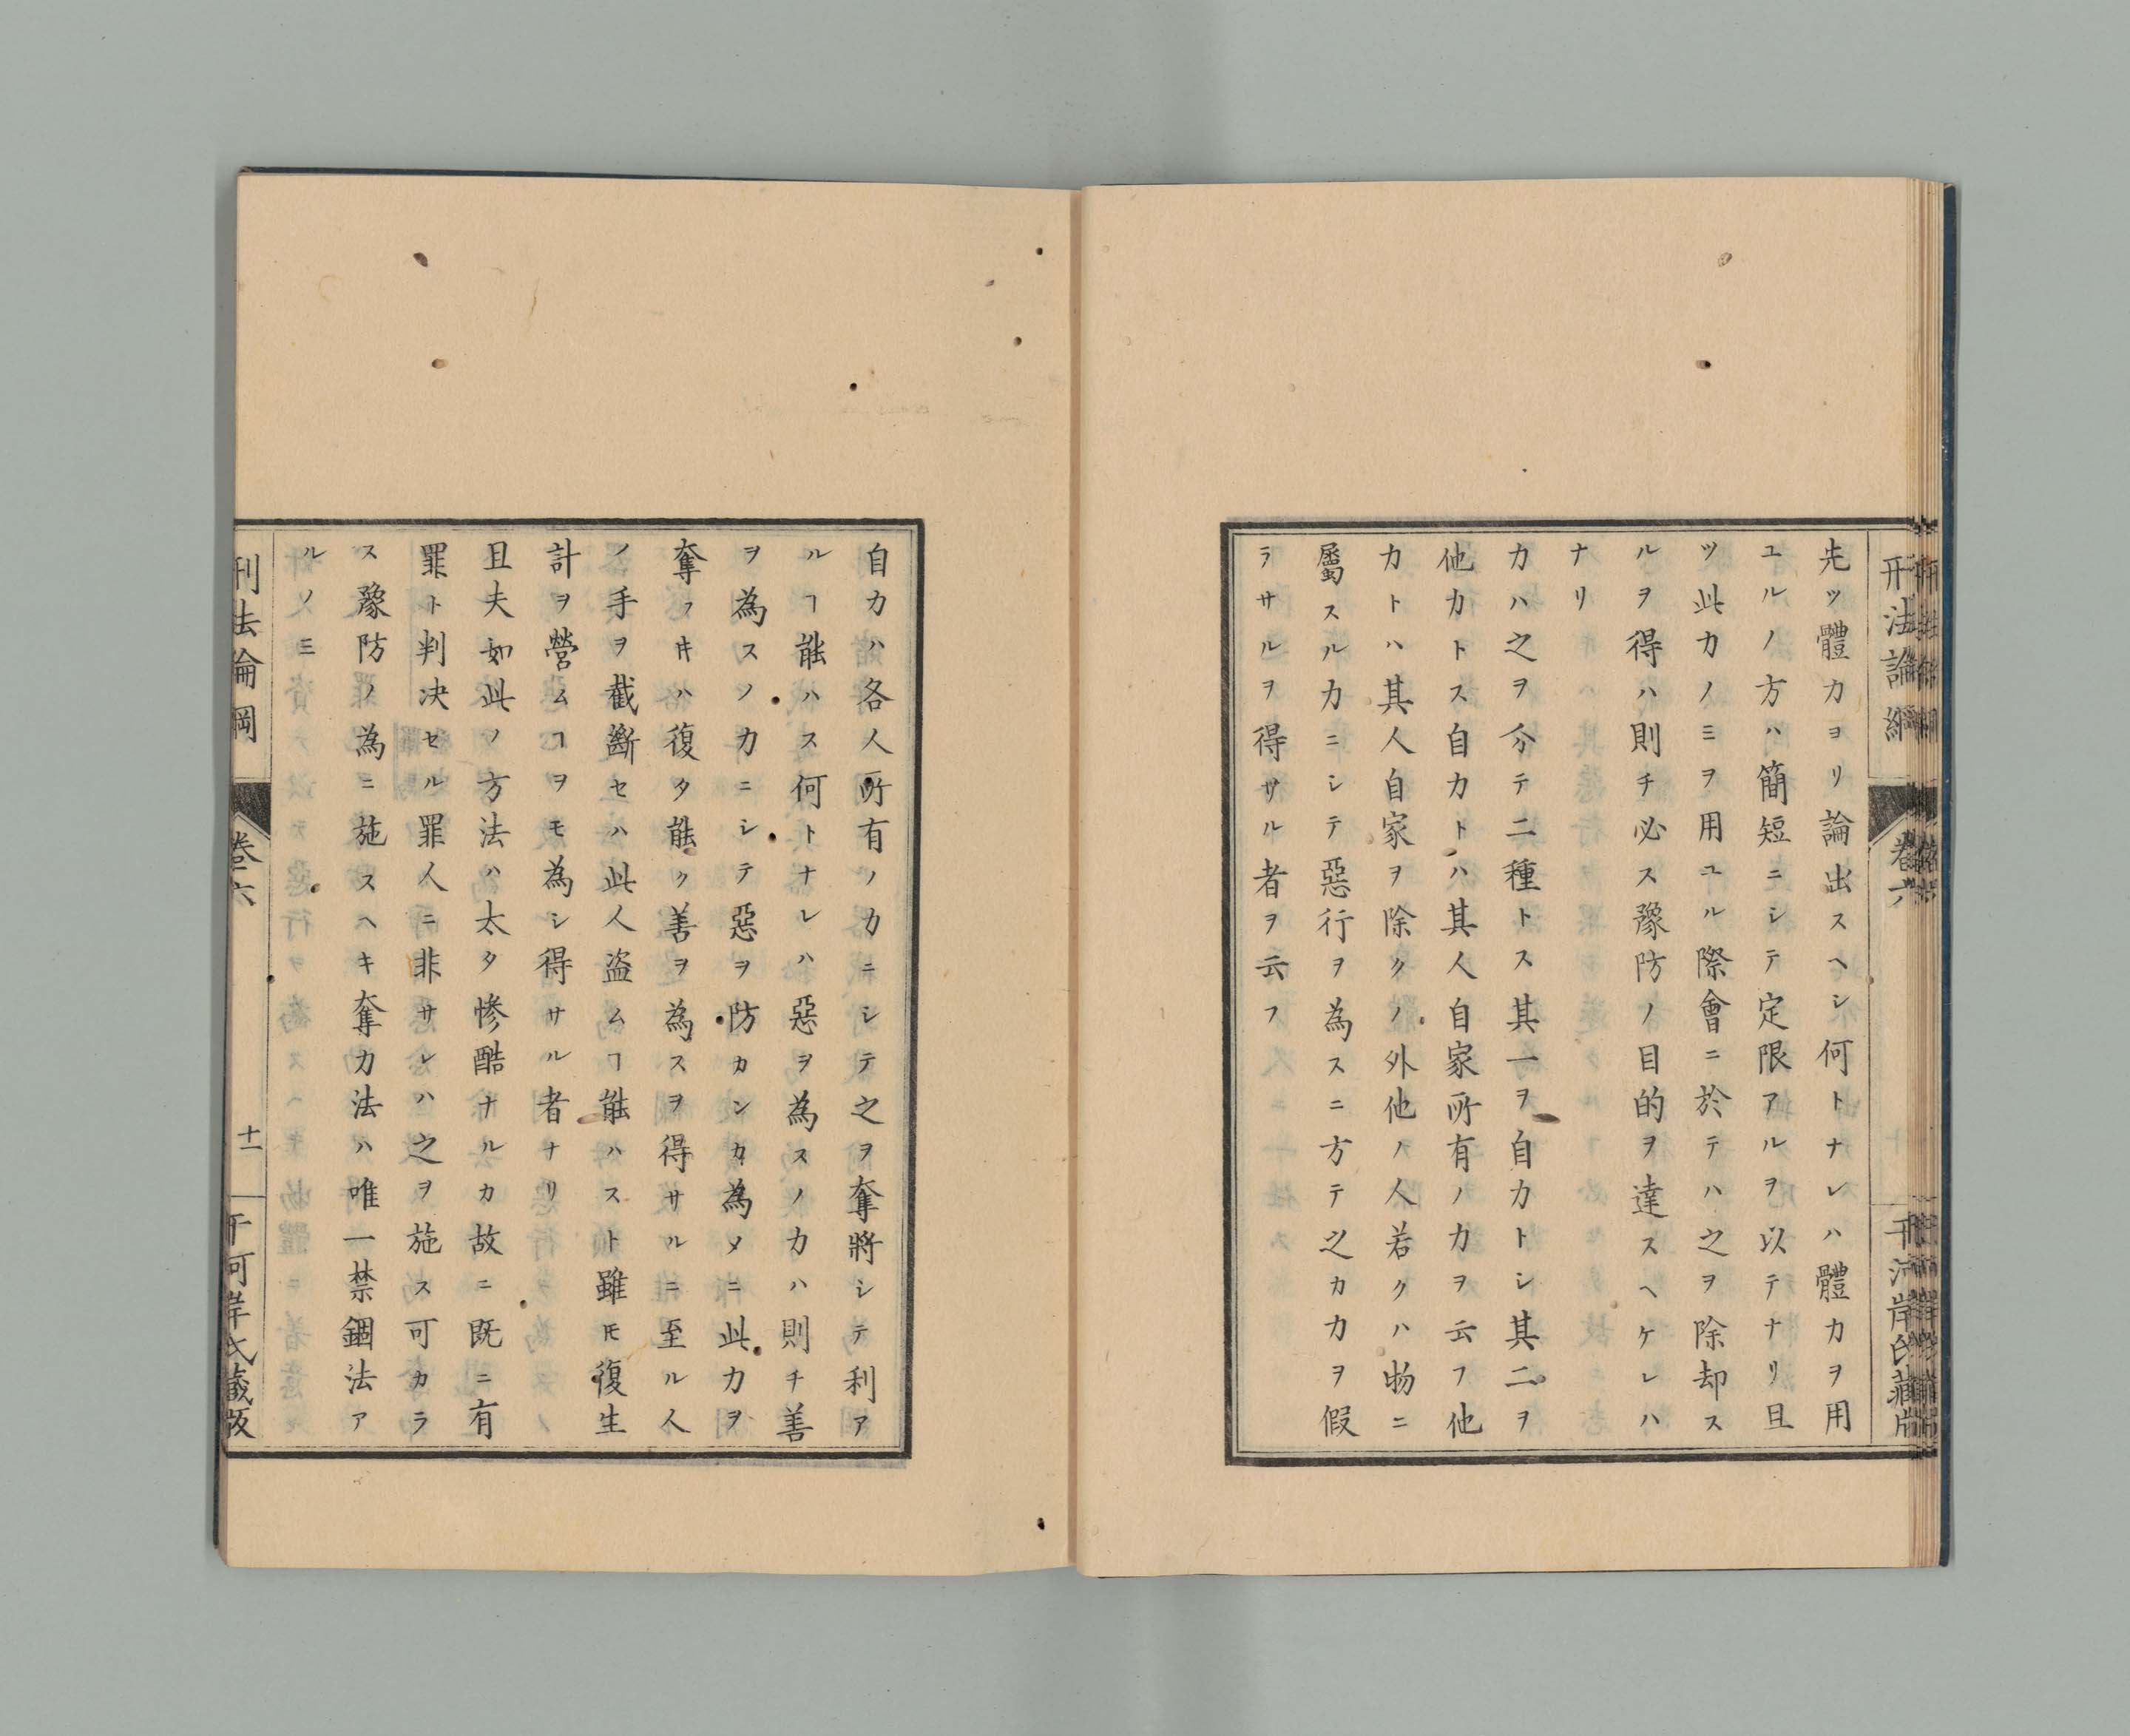 刑法論綱
卷六
先ツ體力ヨリ論出スヘシ何トナレハ體力ヲ用
ユルノ方ハ簡短ニシテ定限アルヲ以テナリ且
ツ此力ノミヲ用ユル際會ニ於テハ之ヲ除却ス
ルヲ得ハ則チ必ス豫防ノ目的ヲ達スヘケレハ
ナリ
力ハ之ヲ分テ二種トス其一ヲ自力トシ其二ヲ
他力トス自力トハ其人自家所有ノ力ヲ云フ他
力トハ其人自家ヲ除クノ外他ノ人若クハ物ニ
屬スル力ニシテ惡行ヲ為スニ方テ之カ力ヲ假
ラサルヲ得サル者ヲ云フ
自力ハ各人所有ノ力ニシテ之ヲ奪將シテ利ア
ルヿ能ハス何トナレハ惡ヲ為スノ力ハ則チ善
ヲ為スノ力ニシテ惡ヲ防カンカ為メニ此力ヲ
奪フキハ復タ能ク善ヲ為スヲ得サルニ至ル人
ノ手ヲ截斷セハ此人盗ムヿ能ハスト雖𪜈復生
計ヲ營ムヿヲモ為シ得サル者ナリ
且夫如此ノ方法ハ太タ慘酷ナルカ故ニ既ニ有
罪ト判决セル罪人ニ非サレハ之ヲ施ス可カラ
ス豫防ノ為ニ施スヘキ奪力法ハ唯一禁錮法ア
ルノミ
刑法論綱
卷六
十一
干河岸氏藏版